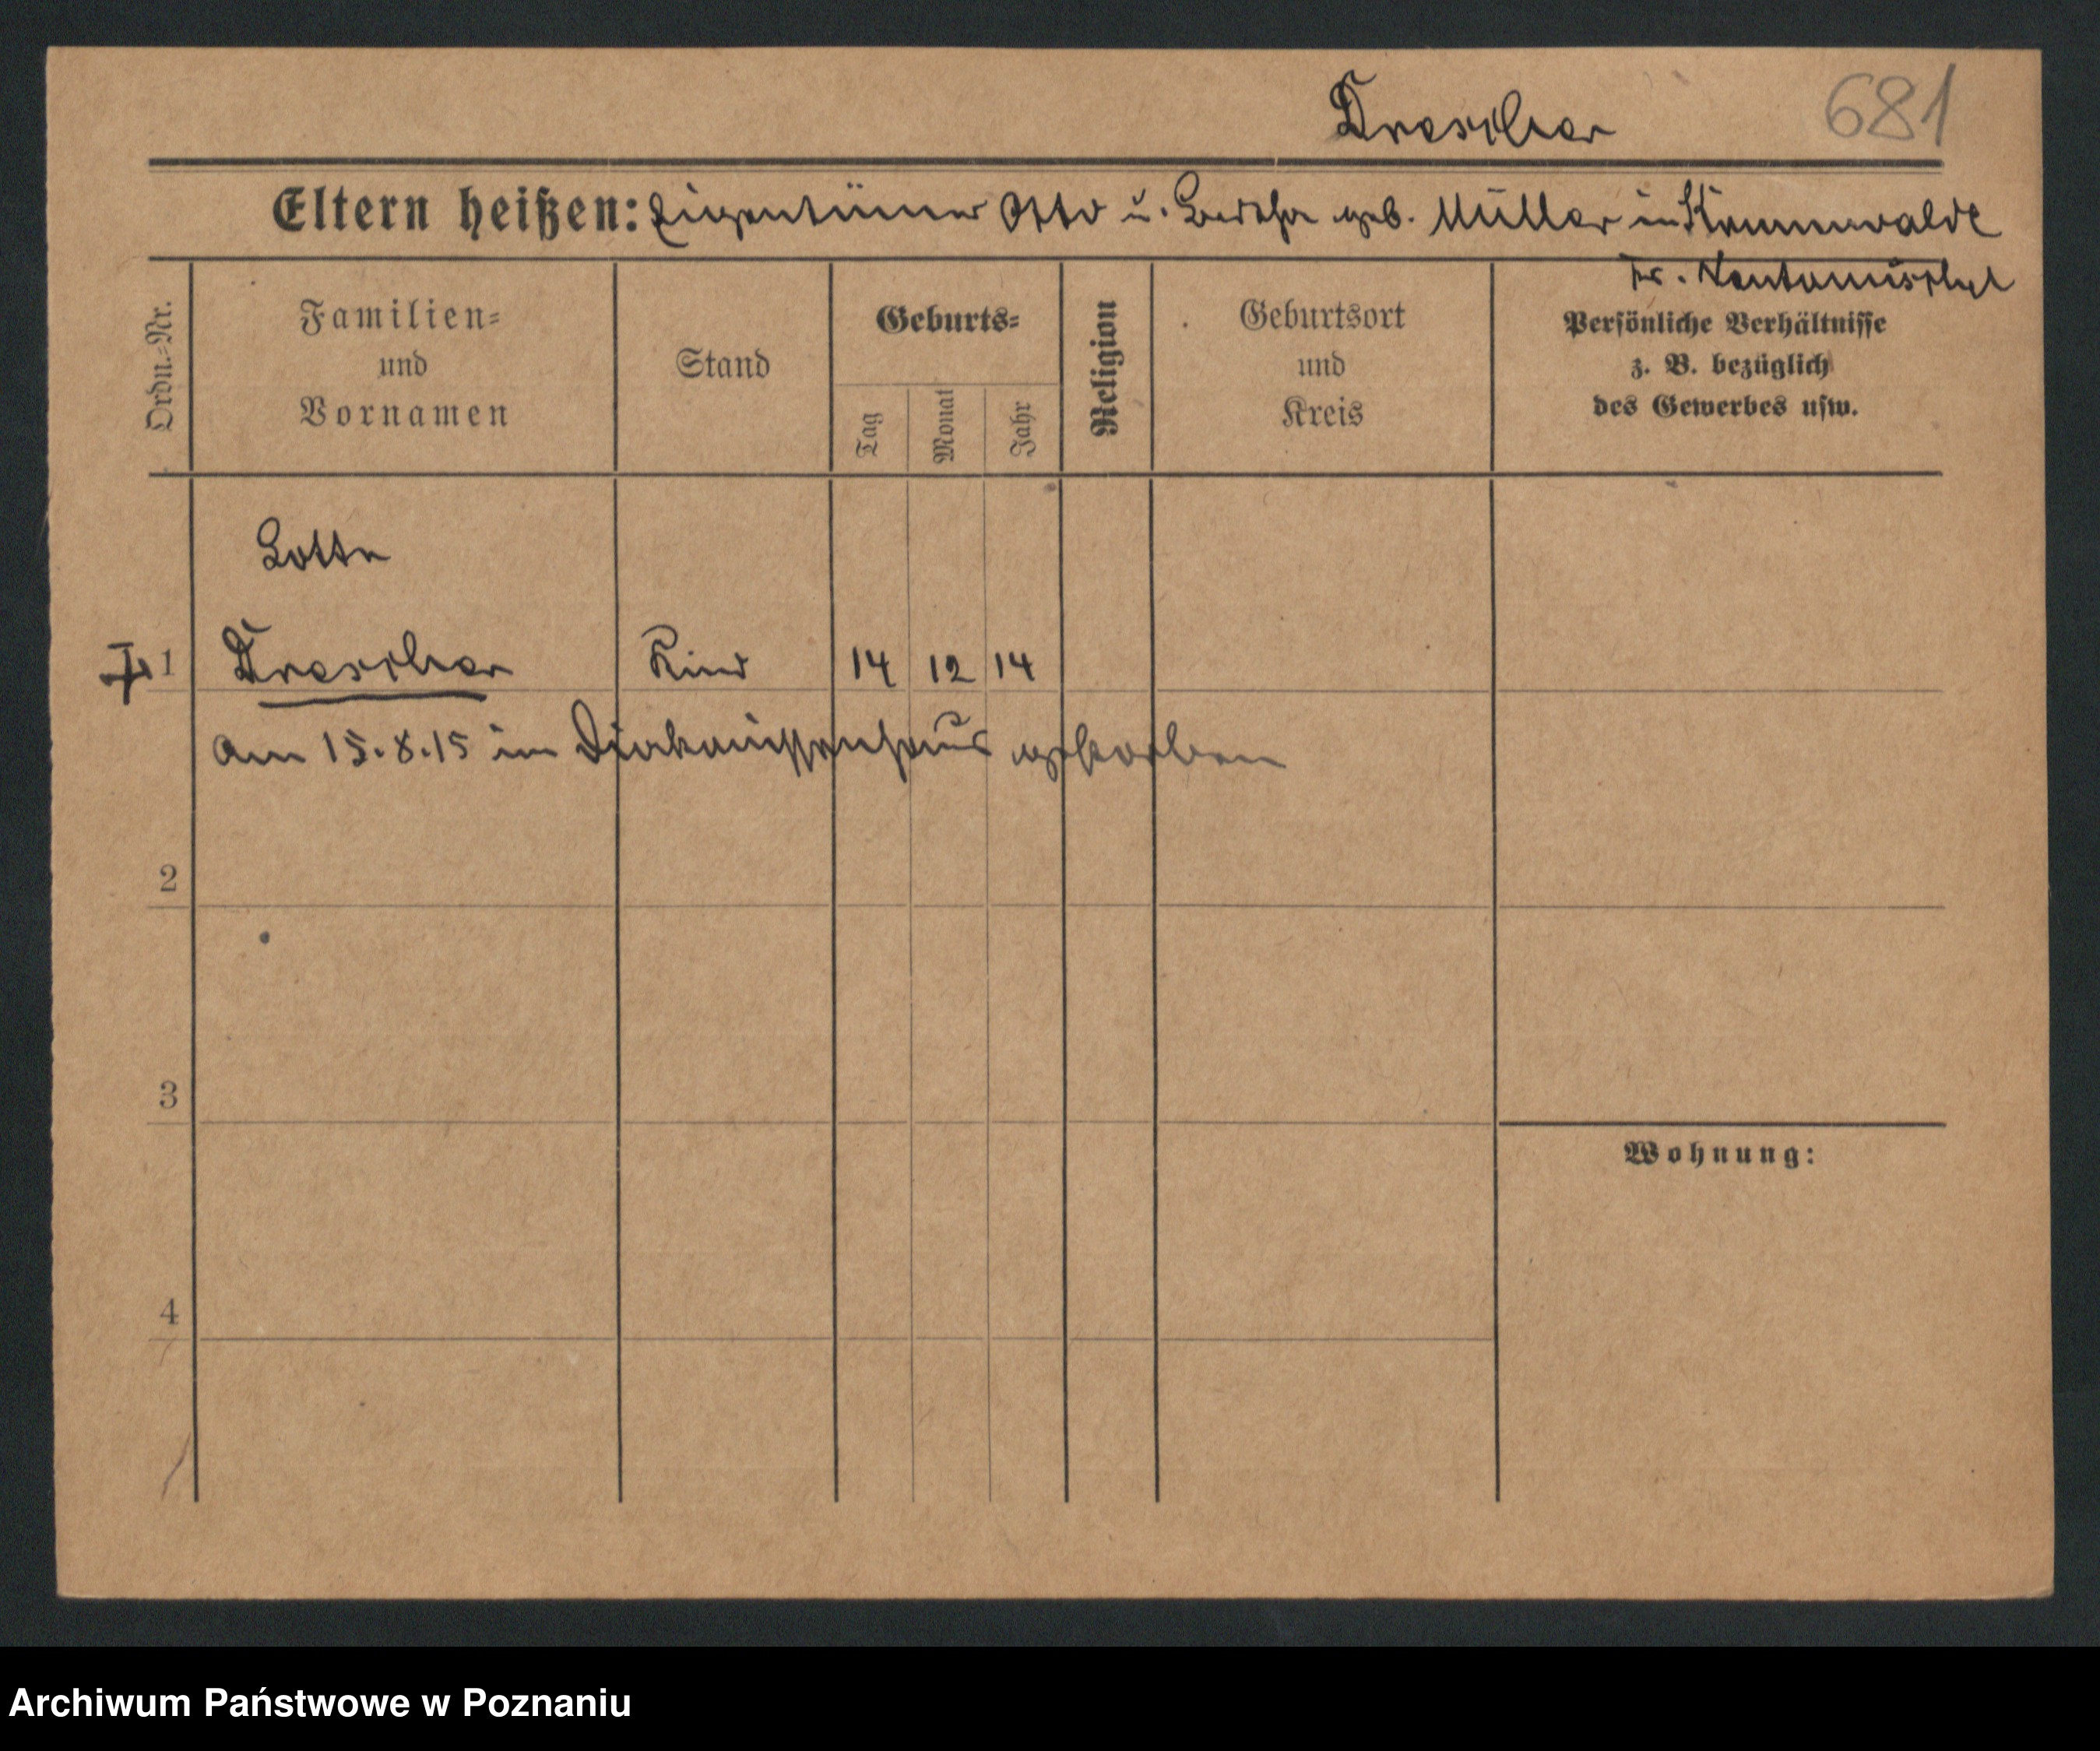 Drescher 681
Eltern heißen: Eigentümer Otto u. Bertha geb. Müller in
Kr. Neutomischel
Ordn.=Nr.
Familien=
und
Vornamen
Stand
Geburts=
Tag
Monat
Jahr
Religion
Geburtsort
und
Kreis
Persönliche Verhältnisse
z. B. bezüglich
des Gewerbes usw.
Lotte
1 Drescher Kind 14 12 14
am 15.8.15 im Diakonissenhaus gestorben
2
3
Wohnung:
4
Archiwum Państwowe w Poznaniu